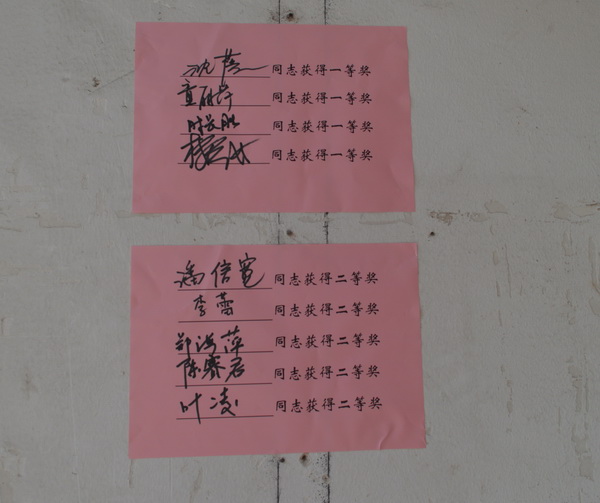 沈蓓同志获得一等奖
童丽华同志获得一等奖
时长胜同志获得一等奖
同志获得一等奖
潘信宽同志获得二等奖
李蕾同志获得二等奖
郑海萍同志获得二等奖
陈赛君同志获得二等奖
叶凌同志获得二等奖